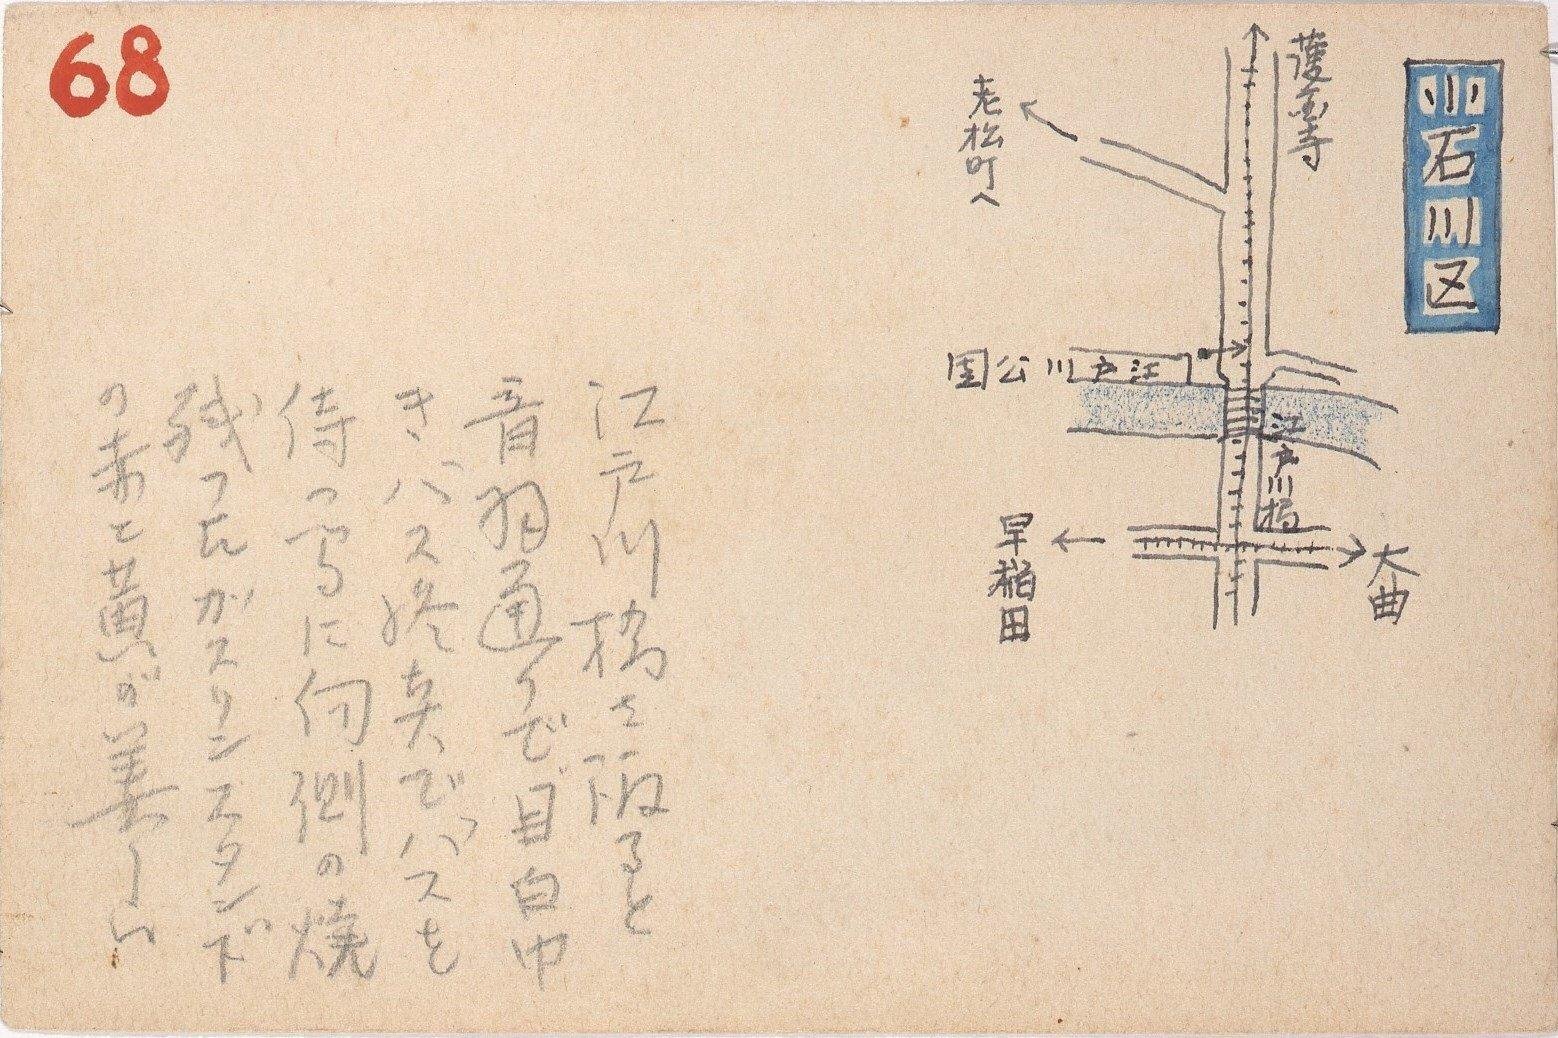 68
小石川区
護国寺
老松町へ
江戸川公園
江戸川橋
早稲田
大曲
江戸川橋を ると
音羽通りで目白ゆ
きバス終点でバスを
待つ に向側の焼
残ったガスリンスタンド
の赤と黄が美しい